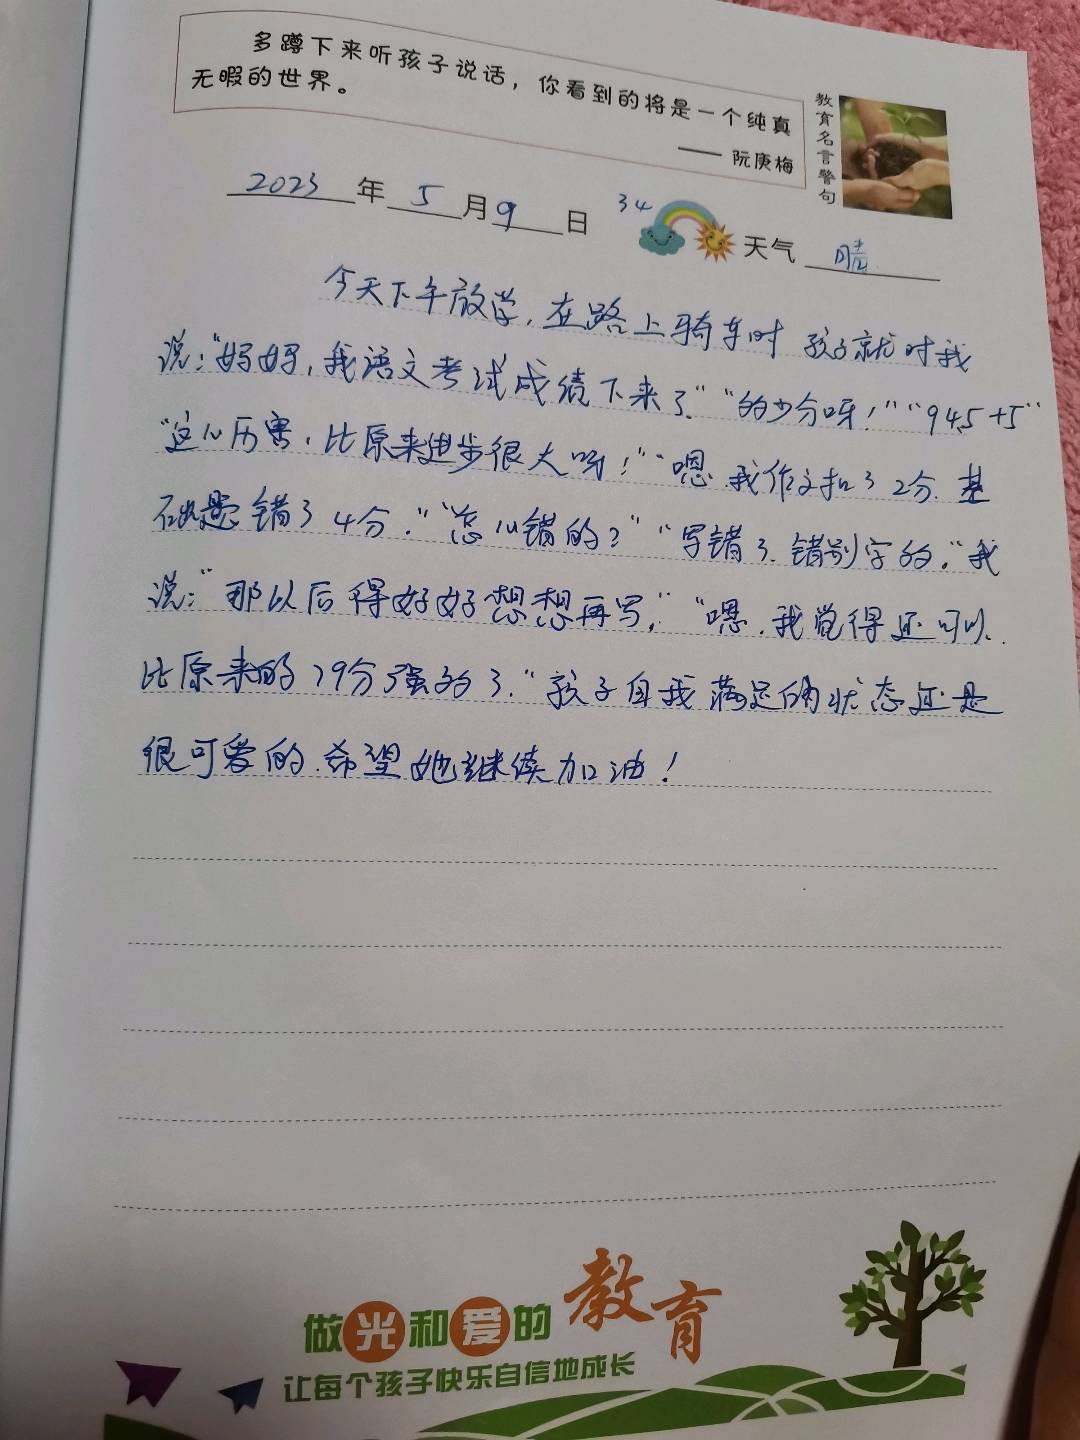 多蹲下来听孩子说话，你看到的将是一个纯真
无暇的世界。
—— 阮庚梅
教育名言警句
2023年5月9日 34 天气 晴
今天下午放学，在路上骑车时 孩子就对我
说："妈妈，我语文考试成绩下来了""的少分呀！""94.5+5"
"这么厉害，比原来进步很大呀！""嗯.我作文扣了2分.基
础题错了4分.""怎么错的？""写错了.错别字的."我
说："那以后得好好想想再写，""嗯.我觉得还可以.
比原来的79分强多了."孩子自我满足的状态还是
很可爱的.希望她继续加油！
做光和爱的教育
让每个孩子快乐自信地成长